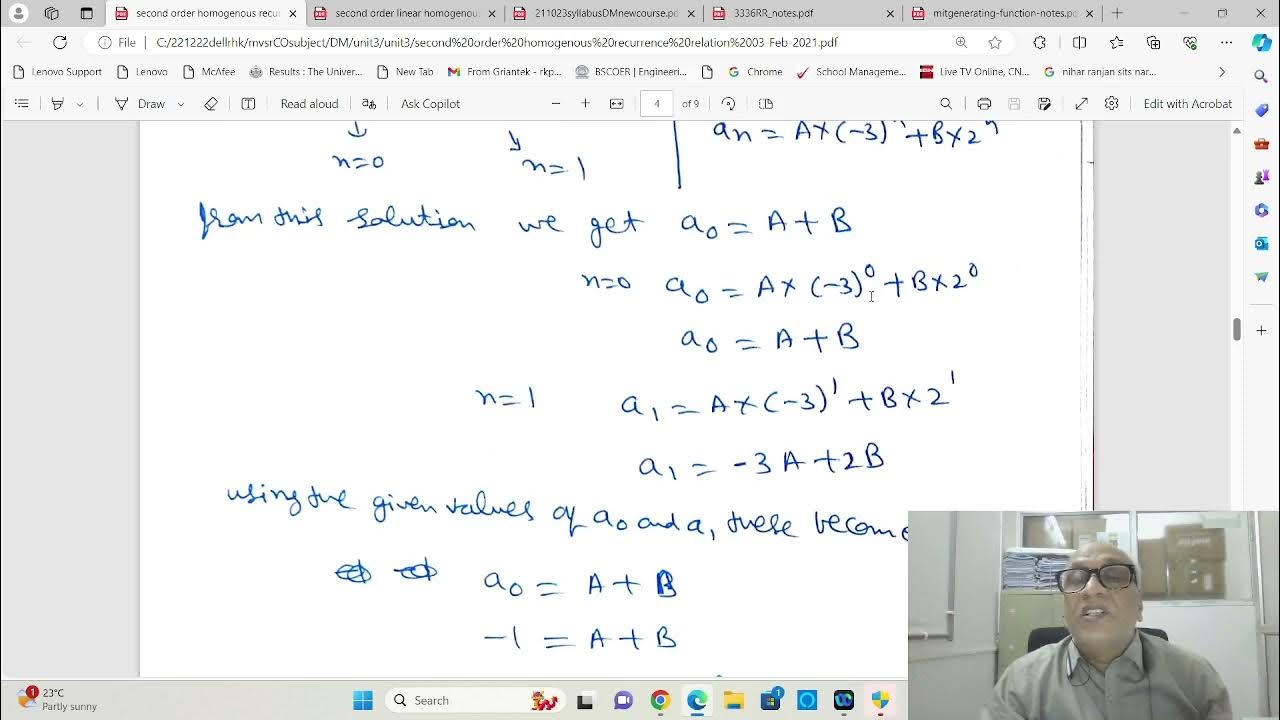 second order homogenous recur
second order linear homogenous
211023syllabusDMnewcourse.pd
3336RR_notes.pdf
mitgenerating-function-notes.pd
File C:/221222dellrhk/mvsrCOsubject/DM/unit3/unit3/second%20order%20homogenous%20recurrence%20relation%2003-Feb-2021.pdf
Lenovo Support Lenovo McAfee Results : The Univer... New Tab From Griantek - rkp... BSCOER | Engineeri... Chrome School Manageme... Live TV Online, CN... nihar ranjan sits nar...
Draw Read aloud Ask Copilot 4 of 9 Edit with Acrobat
an = A×(-3)ⁿ + B×2ⁿ
n=0 n=1
from this solution we get a₀ = A + B
n=0 a₀ = A× (-3)⁰ + B×2⁰
a₀ = A + B
n=1 a₁ = A×(-3)¹ + B×2¹
a₁ = -3A+2B
using the given values of a₀ and a₁ these become
a₀ = A + B
-1 = A + B
1
23°C
Partly sunny
Search
1